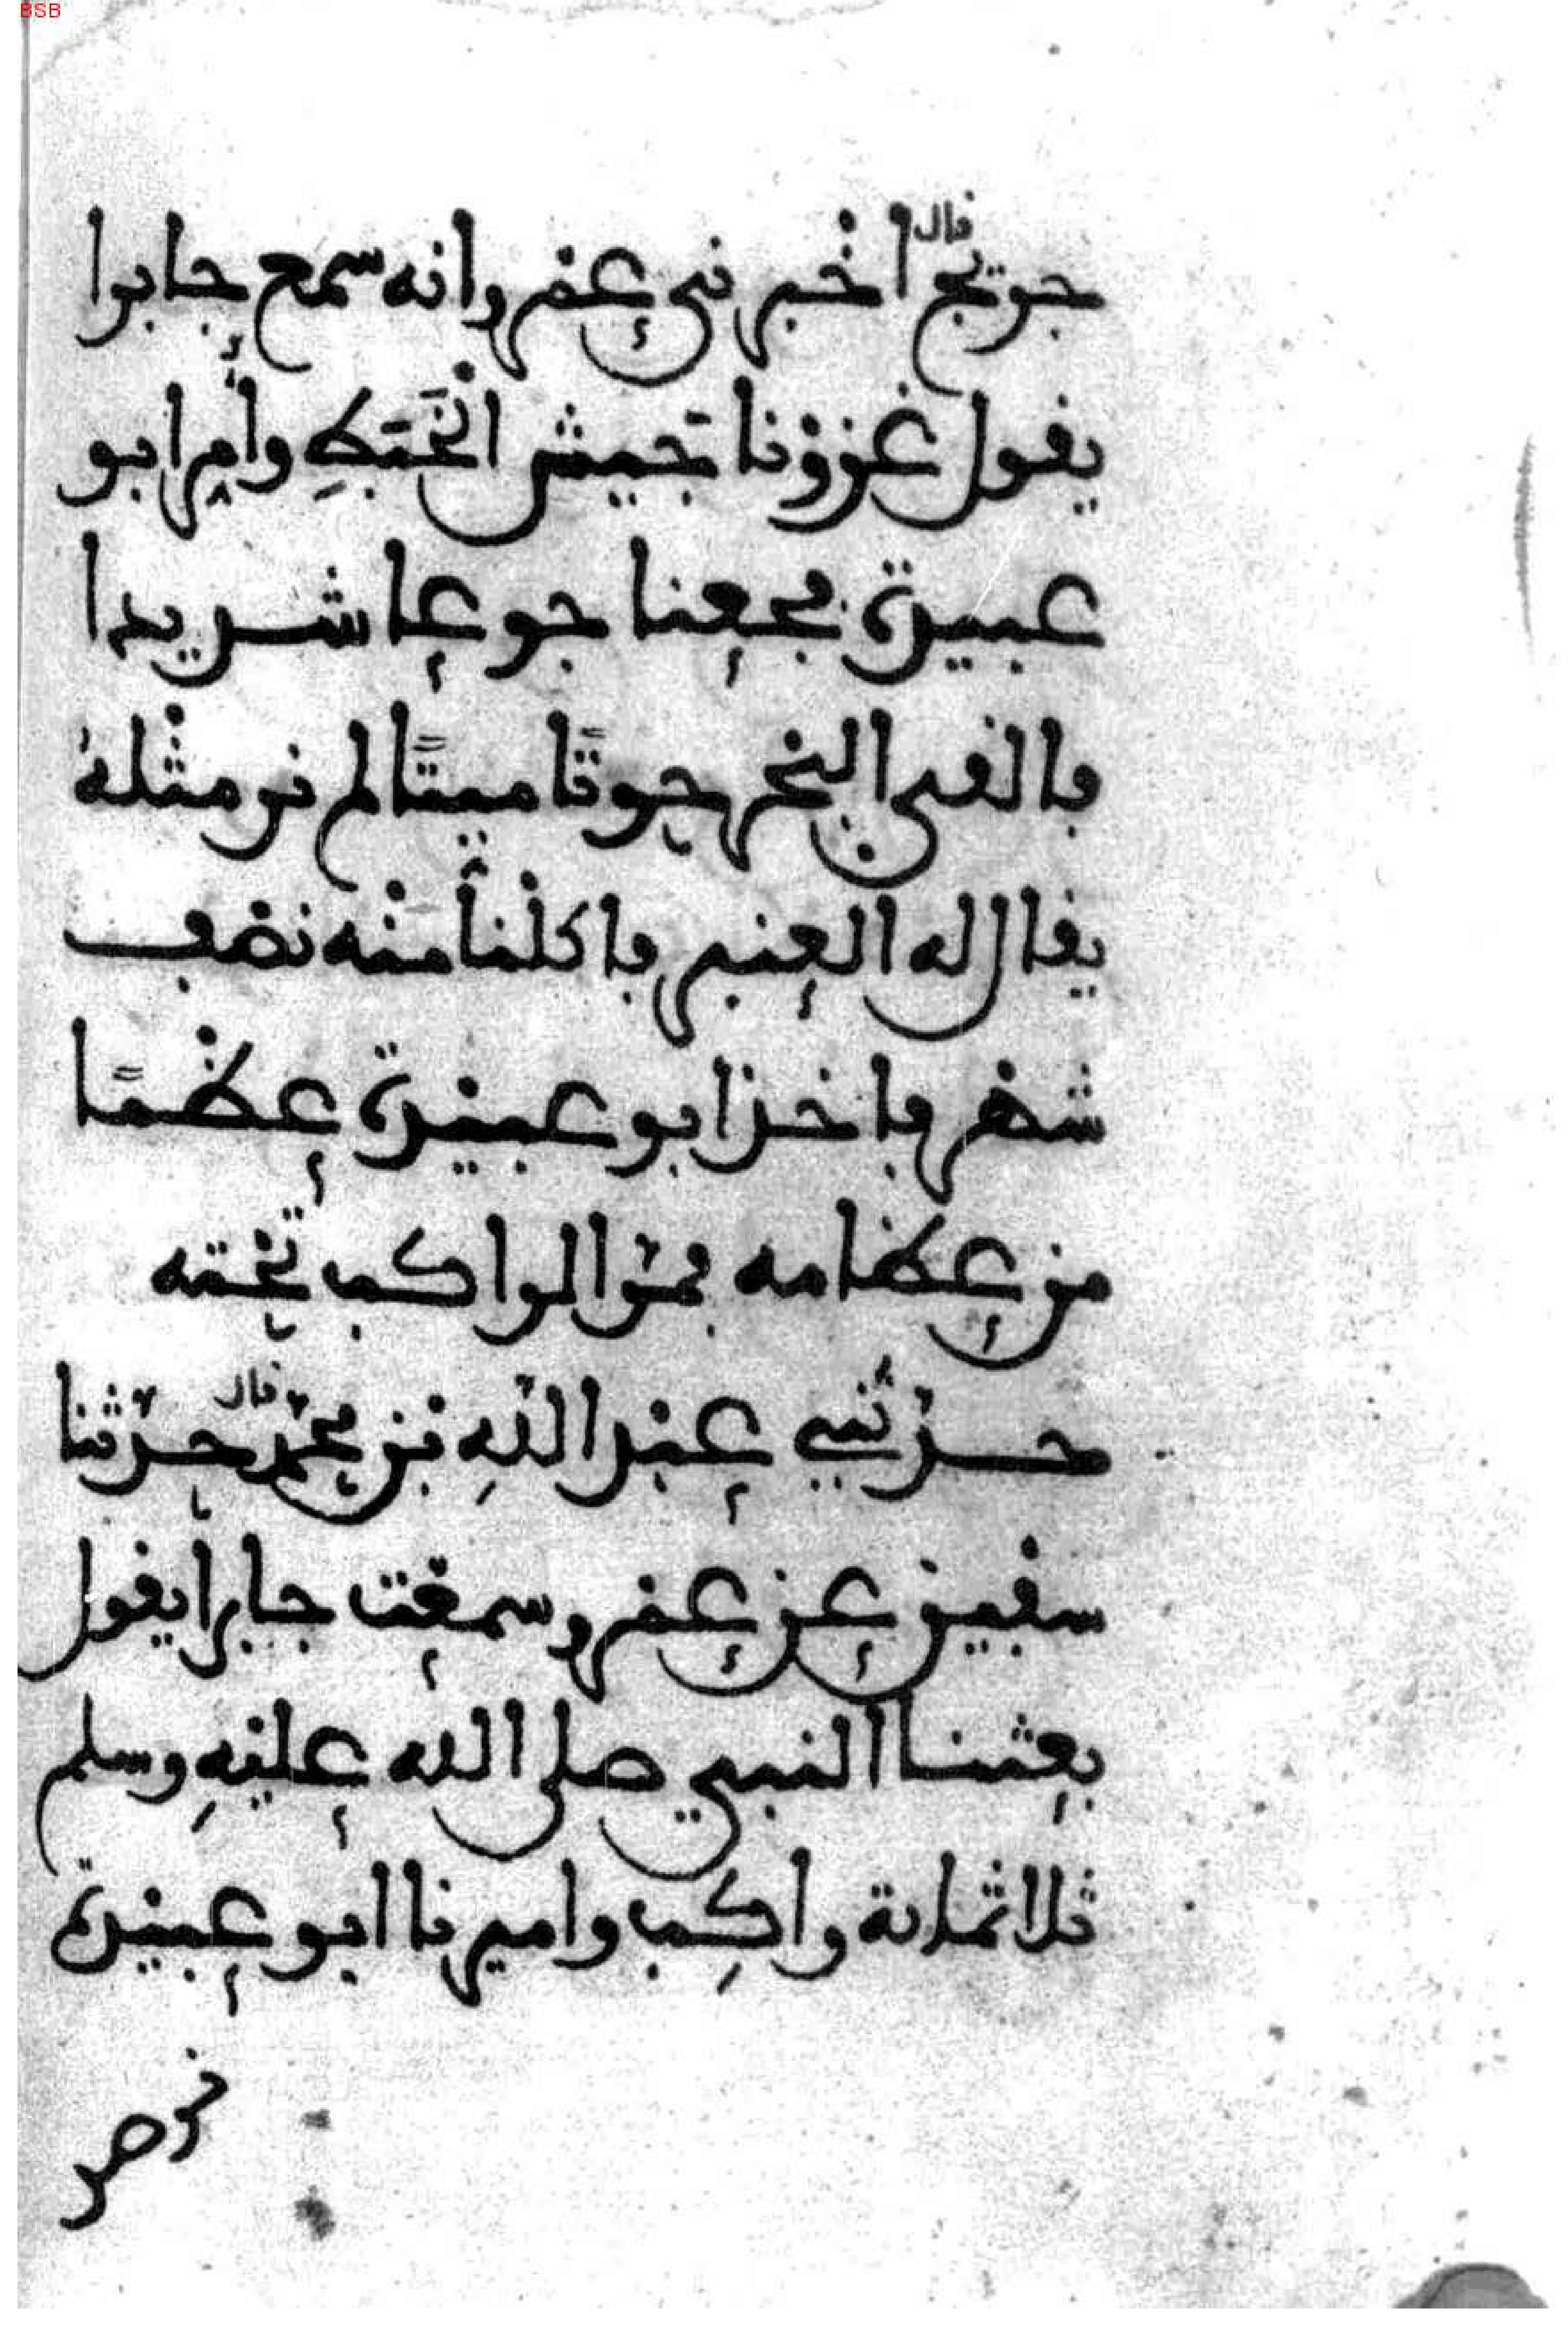 BSB
قال
جريج اخبرني عمرو انه سمع جابرا
يقول غزونا جيش الخبط وأمر ابو
عبيدة فجعنا جوعا شديدا
فالقى البحر حوتًا ميتًا لم نر مثله
يقال له العنبر فاكلنا منه نصف
شهر فاخذ ابو عبيدة عظمًا
من عظامه فمر الراكب تحته
حدثني عبد الله بن محمد قال حدثنا
سفين عن عمرو سمعت جابرا يقول
بعثنا النبي صلى الله عليه وسلم
ثلاثماىة راكب واميرنا ابو عبيدة
نرصد